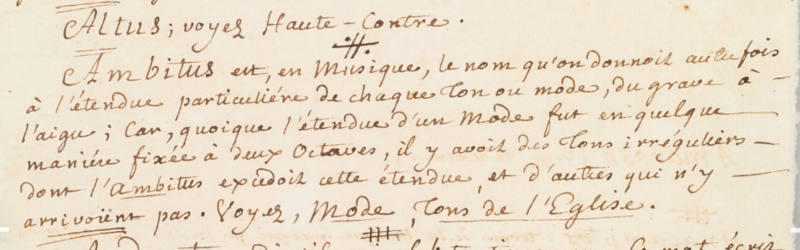 Altus; voyez Haute-Contre.
Ambitus est, en Musique, le nom qu'on donnoit autrefois
à l'étendue particuliére de chaque Ton ou mode, du grave à
l'aigu; Car, quoique l'étendue d'un Mode fut en quelque
maniére fixée à deux Octaves, il y avoit des Tons irréguliers
dont l'Ambitus excedoit cette étendue, et d'autres qui n'y
arrivoient pas. Voyez, Mode, Tons de l'Eglise.